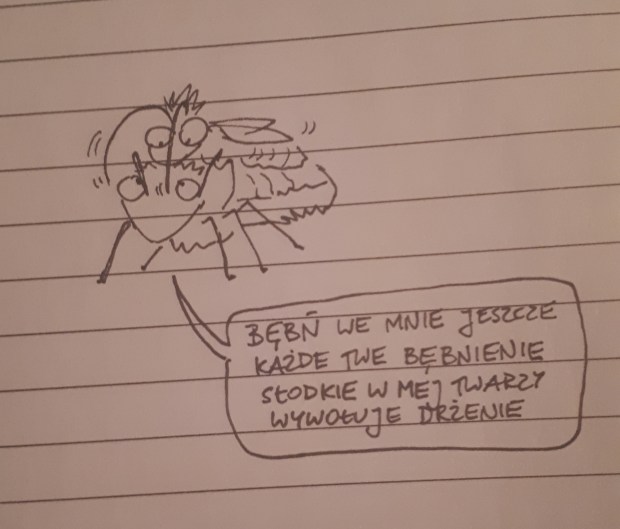 BĘBŃ WE MNIE JESZCZE
KAŻDE TWE BĘBNIENIE
SŁODKIE W MEJ TWARZY
WYWOŁUJE DRŻENIE